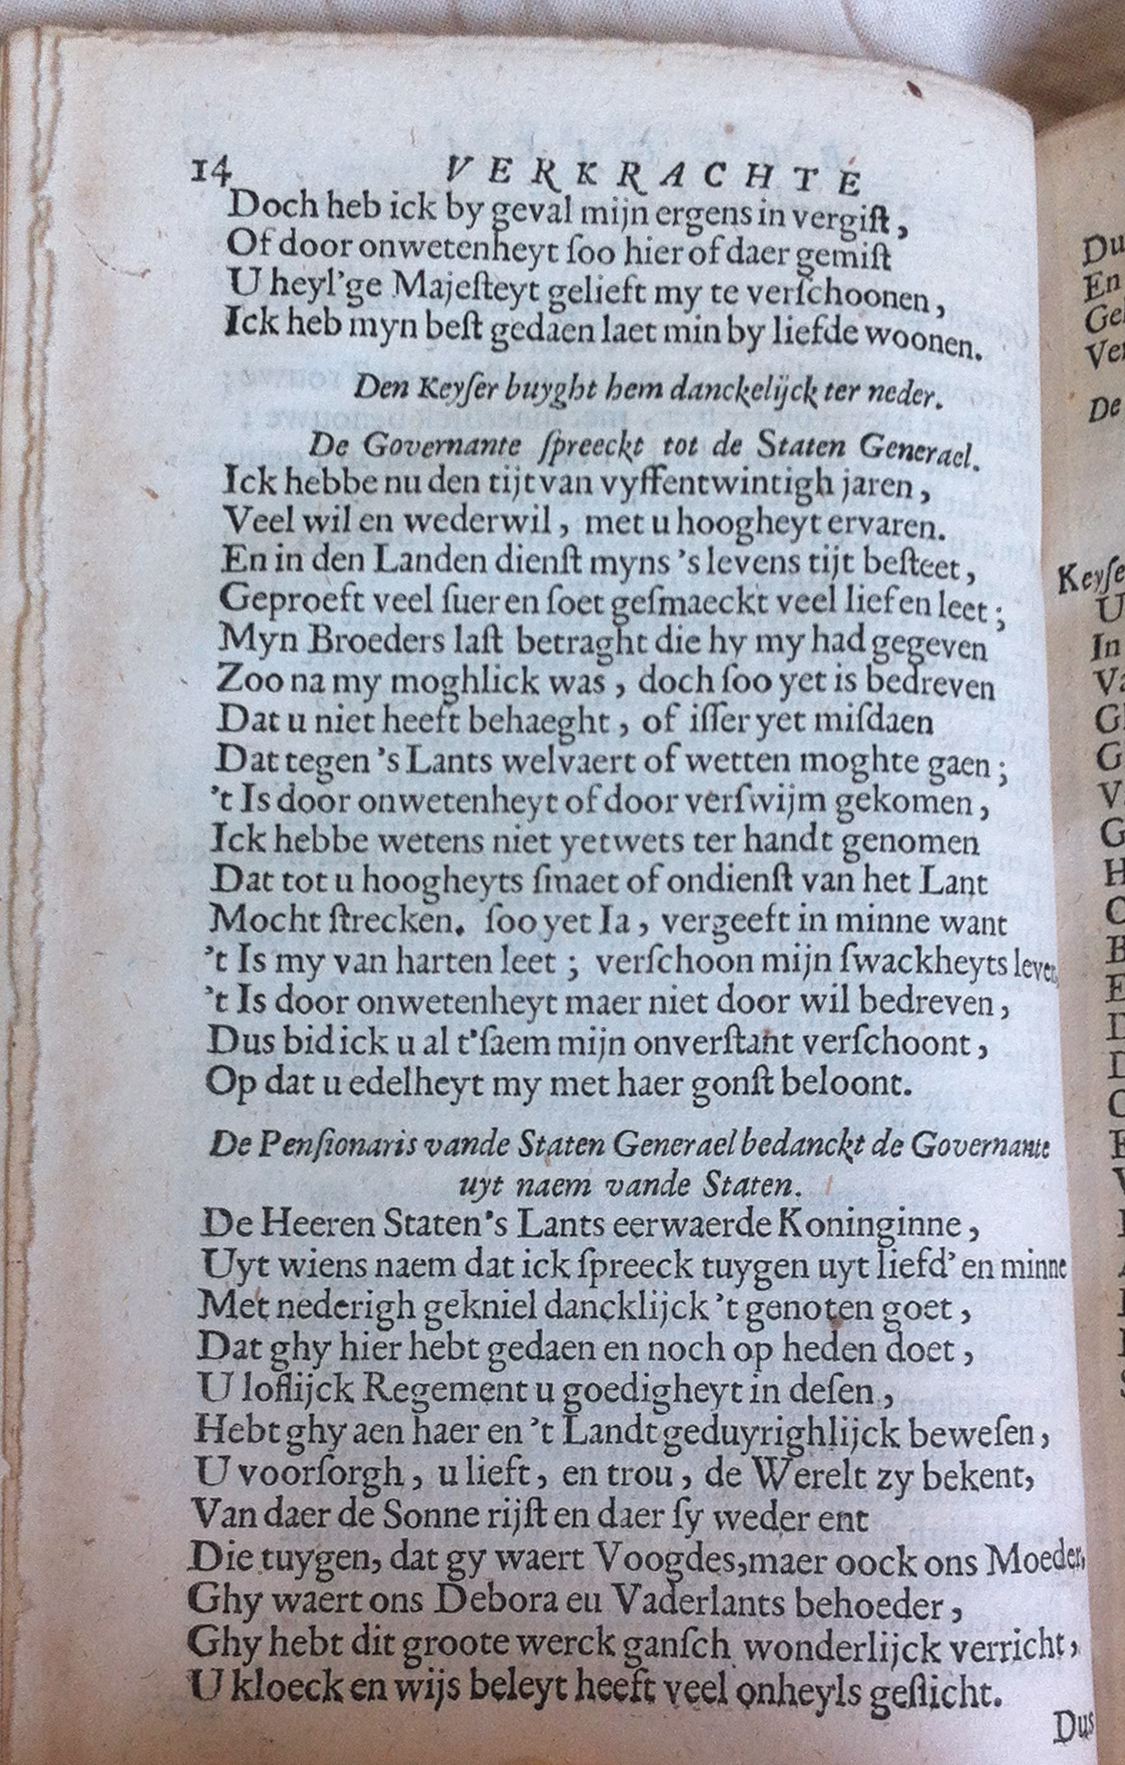 14 VERKRACHTE
Doch heb ick by geval mijn ergens in vergiſt,
Of door onwetenheyt ſoo hier of daer gemiſt
U heyl'ge Majeſteyt gelieft my te verſchoonen,
Ick heb myn beſt gedaen laet min by liefde woonen.
Den Keyſer buyght hem danckelijck ter neder.
De Governante ſpreeckt tot de Staten Generael.
Ick hebbe nu den tijt van vyffentwintigh jaren,
Veel wil en wederwil, met u hoogheyt ervaren.
En in den Landen dienſt myns 's levens tijt beſteet,
Geproeft veel ſuer en ſoet geſmaeckt veel lief en leet;
Myn Broeders laſt betraght die hy my had gegeven
Zoo na my moghlick was, doch ſoo yet is bedreven
Dat u niet heeft behaeght, of iſſer yet miſdaen
Dat tegen 's Lants welvaert of wetten moghte gaen;
't Is door onwetenheyt of door verſwijm gekomen,
Ick hebbe wetens niet yetwets ter handt genomen
Dat tot u hoogheyts ſmaet of ondienſt van het Lant
Mocht ſtrecken. ſoo yet Ia, vergeeft in minne want
't Is my van harten leet; verſchoon mijn ſwackheyts leven
't Is door onwetenheyt maer niet door wil bedreven,
Dus bid ick u al t'ſaem mijn onverſtant verſchoont,
Op dat u edelheyt my met haer gonſt beloont.
De Penſionaris vande Staten Generael bedanckt de Governante
uyt naem vande Staten.
De Heeren Staten's Lants eerwaerde Koninginne,
Uyt wiens naem dat ick ſpreeck tuygen uyt liefd' en minne
Met nederigh gekniel dancklijck 't genoten goet,
Dat ghy hier hebt gedaen en noch op heden doet,
U loflijck Regement u goedigheyt in deſen,
Hebt ghy aen haer en 't Landt geduyrighlijck beweſen,
U voorſorgh, u lieft, en trou, de Werelt zy bekent,
Van daer de Sonne rijſt en daer ſy weder ent
Die tuygen, dat gy waert Voogdes, maer oock ons Moeder,
Ghy waert ons Debora eu Vaderlants behoeder,
Ghy hebt dit groote werck ganſch wonderlijck verricht,
U kloeck en wijs beleyt heeft veel onheyls geſlicht.
Dus
Du
En
Gel
Ver
De
Keyſe
U
In